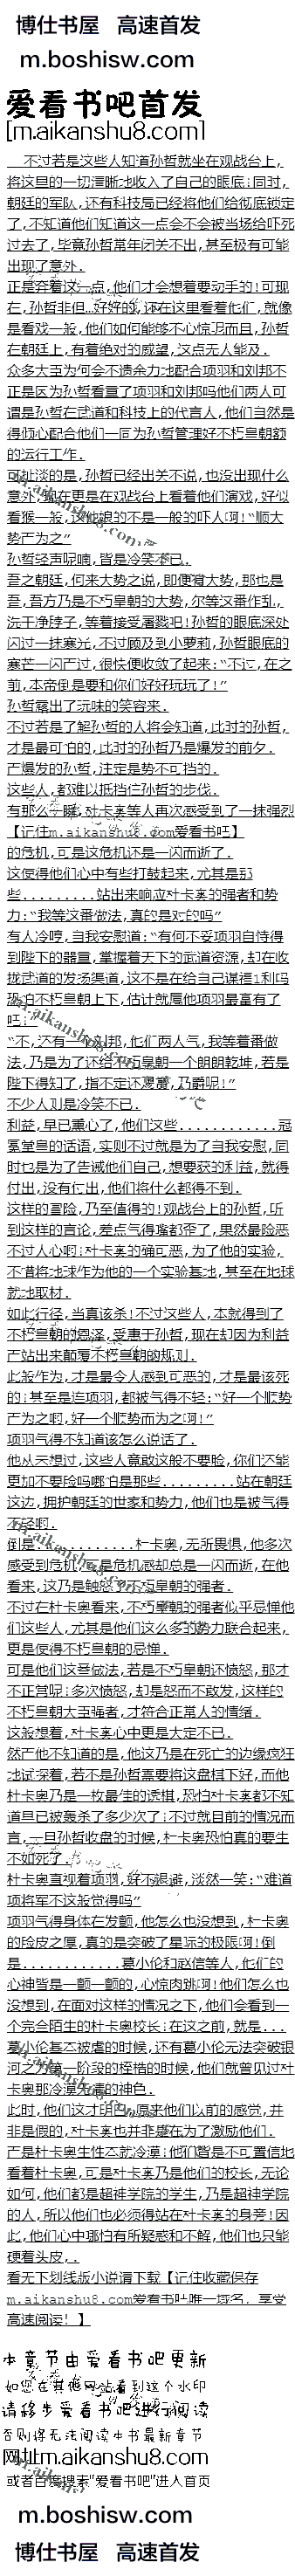 博仕书屋 高速首发
m.boshisw.com
爱看书吧首发
[m.aikanshu8.com]
不过若是这些人知道孙哲就坐在观战台上,
将这里的一切清晰地收入了自己的眼底!同时,
朝廷的军队,还有科技局已经将他们给彻底锁定
了,不知道他们知道这一点会不会被当场给吓死
过去了,毕竟孙哲常年闭关不出,甚至极有可能
出现了意外.
正是弃着这一点,他们才会想着要动手的!可现
在,孙哲非但…好好的,还在这里看着他们,就像
是看戏一般,他们如何能够不心惊呢而且,孙哲
在朝廷上,有着绝对的威望,这点无人能及.
众多大臣为何会不遗余力地配合项羽和刘邦不
正是因为孙哲看重了项羽和刘邦吗他们两人可
谓是孙哲在武道和科技上的代言人,他们当然是
得倾心配合他们一同为孙哲管理好不朽皇朝额
的运行工作.
可扯淡的是,孙哲已经出关不说,也没出现什么
意外,现在更是在观战台上看着他们演戏,好似
看猴一般,这娘娘的不是一般的吓人啊!“顺大
势而为之”
孙哲轻声呢喃,皆是冷笑不已.
吾之朝廷,何来大势之说,即便有大势,那也是
吾,吾方乃是不朽皇朝的大势,尔等这番作乱,
洗干净脖子,等着接受屠戮吧!孙哲的眼底深处
闪过一抹寒光,不过顾及到小萝莉,孙哲眼底的
寒芒一闪而过,很快便收敛了起来:“不过,在之
前,本帝倒是要和你们好好玩玩了!”
孙哲露出了玩味的笑容来.
不过若是了解孙哲的人将会知道,此时的孙哲,
才是最可怕的,此时的孙哲乃是爆发的前夕.
而爆发的孙哲,注定是势不可挡的.
这些人,都难以抵挡住孙哲的步伐.
有那么一瞬,杜卡奥等人再次感受到了一抹强烈
【记住m.aikanshu8.com爱看书吧】
的危机,可是这危机还是一闪而逝了.
这使得他们心中有些打鼓起来,尤其是那
些.........站出来响应杜卡奥的强者和势
力:“我等这番做法,真的是对的吗”
有人冷哼,自我安慰道:“有何不妥项羽自恃得
到陛下的器重,掌握着天下的武道资源,却在收
拢武道的发扬渠道,这不是在给自己谋福利吗
恐怕不朽皇朝上下,估计就属他项羽最富有了
吧!”
“不,还有一个刘邦,他们两人气,我等着番做
法,乃是为了还给不朽皇朝一个朗朗乾坤,若是
陛下得知了,指不定还夸赞,乃爵呢!”
不少人则是冷笑不已.
利益,早已熏心了,他们这些............冠
冕堂皇的话语,实则不过就是为了自我安慰,同
时也是为了告诫他们自己,想要获的利益,就得
付出,没有付出,他们将什么都得不到.
这样的冒险,乃至值得的!观战台上的孙哲,听
到这样的言论,差点气得嘴都歪了,果然最险恶
不过人心啊!杜卡奥的确可恶,为了他的实验,
不惜将地球作为他的一个实验基地,甚至在地球
就地取材.
如此行径,当真该杀!不过这些人,本就得到了
不朽皇朝的恩泽,受惠于孙哲,现在却因为利益
而站出来颠覆不朽皇朝的规则.
此般作为,才是最令人感到可恶的,才是最该死
的!甚至是连项羽,都被气得不轻:“好一个顺势
而为之啊,好一个顺势而为之啊!”
项羽气得不知道该怎么说话了.
他从未想过,这些人竟敢这般不要脸,你们还能
更加不要脸吗哪怕是那些.........站在朝廷
这边,拥护朝廷的世家和势力,他们也是被气得
不轻啊.
倒是............杜卡奥,无所畏惧,他多次
感受到危机,可是危机感却总是一闪而逝,在他
看来,这乃是触怒了不朽皇朝的强者.
不过在杜卡奥看来,不朽皇朝的强者似乎忌惮他
们这些人,尤其是他们这么多的势力联合起来,
更是使得不朽皇朝的忌惮.
可是他们这番做法,若是不朽皇朝还愤怒,那才
不正常呢!多次愤怒,却是怒而不敢发,这样的
不朽皇朝大臣强者,才符合正常人的情绪.
这般想着,杜卡奥心中更是大定不已.
然而他不知道的是,他这乃是在死亡的边缘疯狂
地试探着,若不是孙哲需要将这盘棋下好,而他
杜卡奥乃是一枚最佳的诱棋,恐怕杜卡奥都不知
道早已被轰杀了多少次了!不过就目前的情况而
言,一旦孙哲收盘的时候,杜卡奥恐怕真的要生
不如死了.
杜卡奥直视着项羽,好不退避,淡然一笑:“难道
项将军不这般觉得吗”
项羽气得身体在发颤,他怎么也没想到,杜卡奥
的脸皮之厚,真的是突破了星际的极限啊!倒
是............葛小伦和赵信等人,他们的
心神皆是一颤一颤的,心惊肉跳啊!他们怎么也
没想到,在面对这样的情况之下,他们会看到一
个完全陌生的杜卡奥校长!在这之前,就是...
葛小伦基本被虐的时候,还有葛小伦无法突破银
河之力第一阶段的桎梏的时候,他们就曾见过杜
卡奥那冷漠无情的神色.
此时,他们这才明白,原来他们以前的感觉,并
非是假的,杜卡奥也并非是在为了激励他们.
而是杜卡奥生性本就冷漠!他们皆是不可置信地
看着杜卡奥,可是杜卡奥乃是他们的校长,无论
如何,他们都是超神学院的学生,乃是超神学院
的人,所以他们也必须得站在杜卡奥的身旁!因
此,他们心中哪怕有所疑惑和不解,他们也只能
硬着头皮,.
看无下划线版小说请下载【记住收藏保存
m.aikanshu8.com爱看书吧唯一域名，享受
高速阅读！】
本章节由爱看书吧更新
如您在其他网站看到这个水印
请移步爱看书吧进行阅读
否则将无法阅读本书最新章节
网址m.aikanshu8.com
或者百度搜索"爱看书吧"进入首页
m.boshisw.com
博仕书屋 高速首发